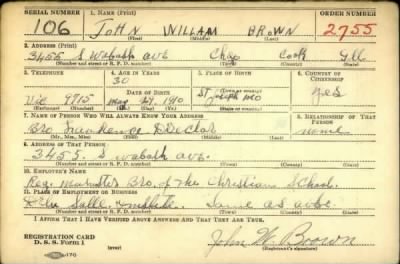 SERIAL NUMBER 1. NAME (Print) ORDER NUMBER
106 JOHN WILLIAM BROWN 2755
(First) (Middle) (Last)
2. ADDRESS (Print)
3455 S Wabash ave Chgo Cook Ill
(Number and street or R. F. D. number) (Town) (County) (State)
3. TELEPHONE 4. AGE IN YEARS 5. PLACE OF BIRTH 6. COUNTRY OF CITIZENSHIP
30
DATE OF BIRTH ST Joseph yes
Vic 9715 May 24 1910 MO
(Exchange) (Number) (Mo.) (Day) (Yr.) (Town or county) (State or country)
7. NAME OF PERSON WHO WILL ALWAYS KNOW YOUR ADDRESS 8. RELATIONSHIP OF THAT PERSON
Bro none
(Mr., Mrs., Miss) (First) (Middle) (Last)
9. ADDRESS OF THAT PERSON
3455. S wabash ave.
(Number and street or R. F. D. number) (Town) (County) (State)
10. EMPLOYER'S NAME
Bro. of the Christians School
11. PLACE OF EMPLOYMENT OR BUSINESS
De La Salle Same as
(Number and street or R. F. D. number) (Town) (County) (State)
I AFFIRM THAT I HAVE VERIFIED ABOVE ANSWERS AND THAT THEY ARE TRUE.
REGISTRATION CARD John W. Brown
D. S. S. Form 1 (over) (Registrant's signature)